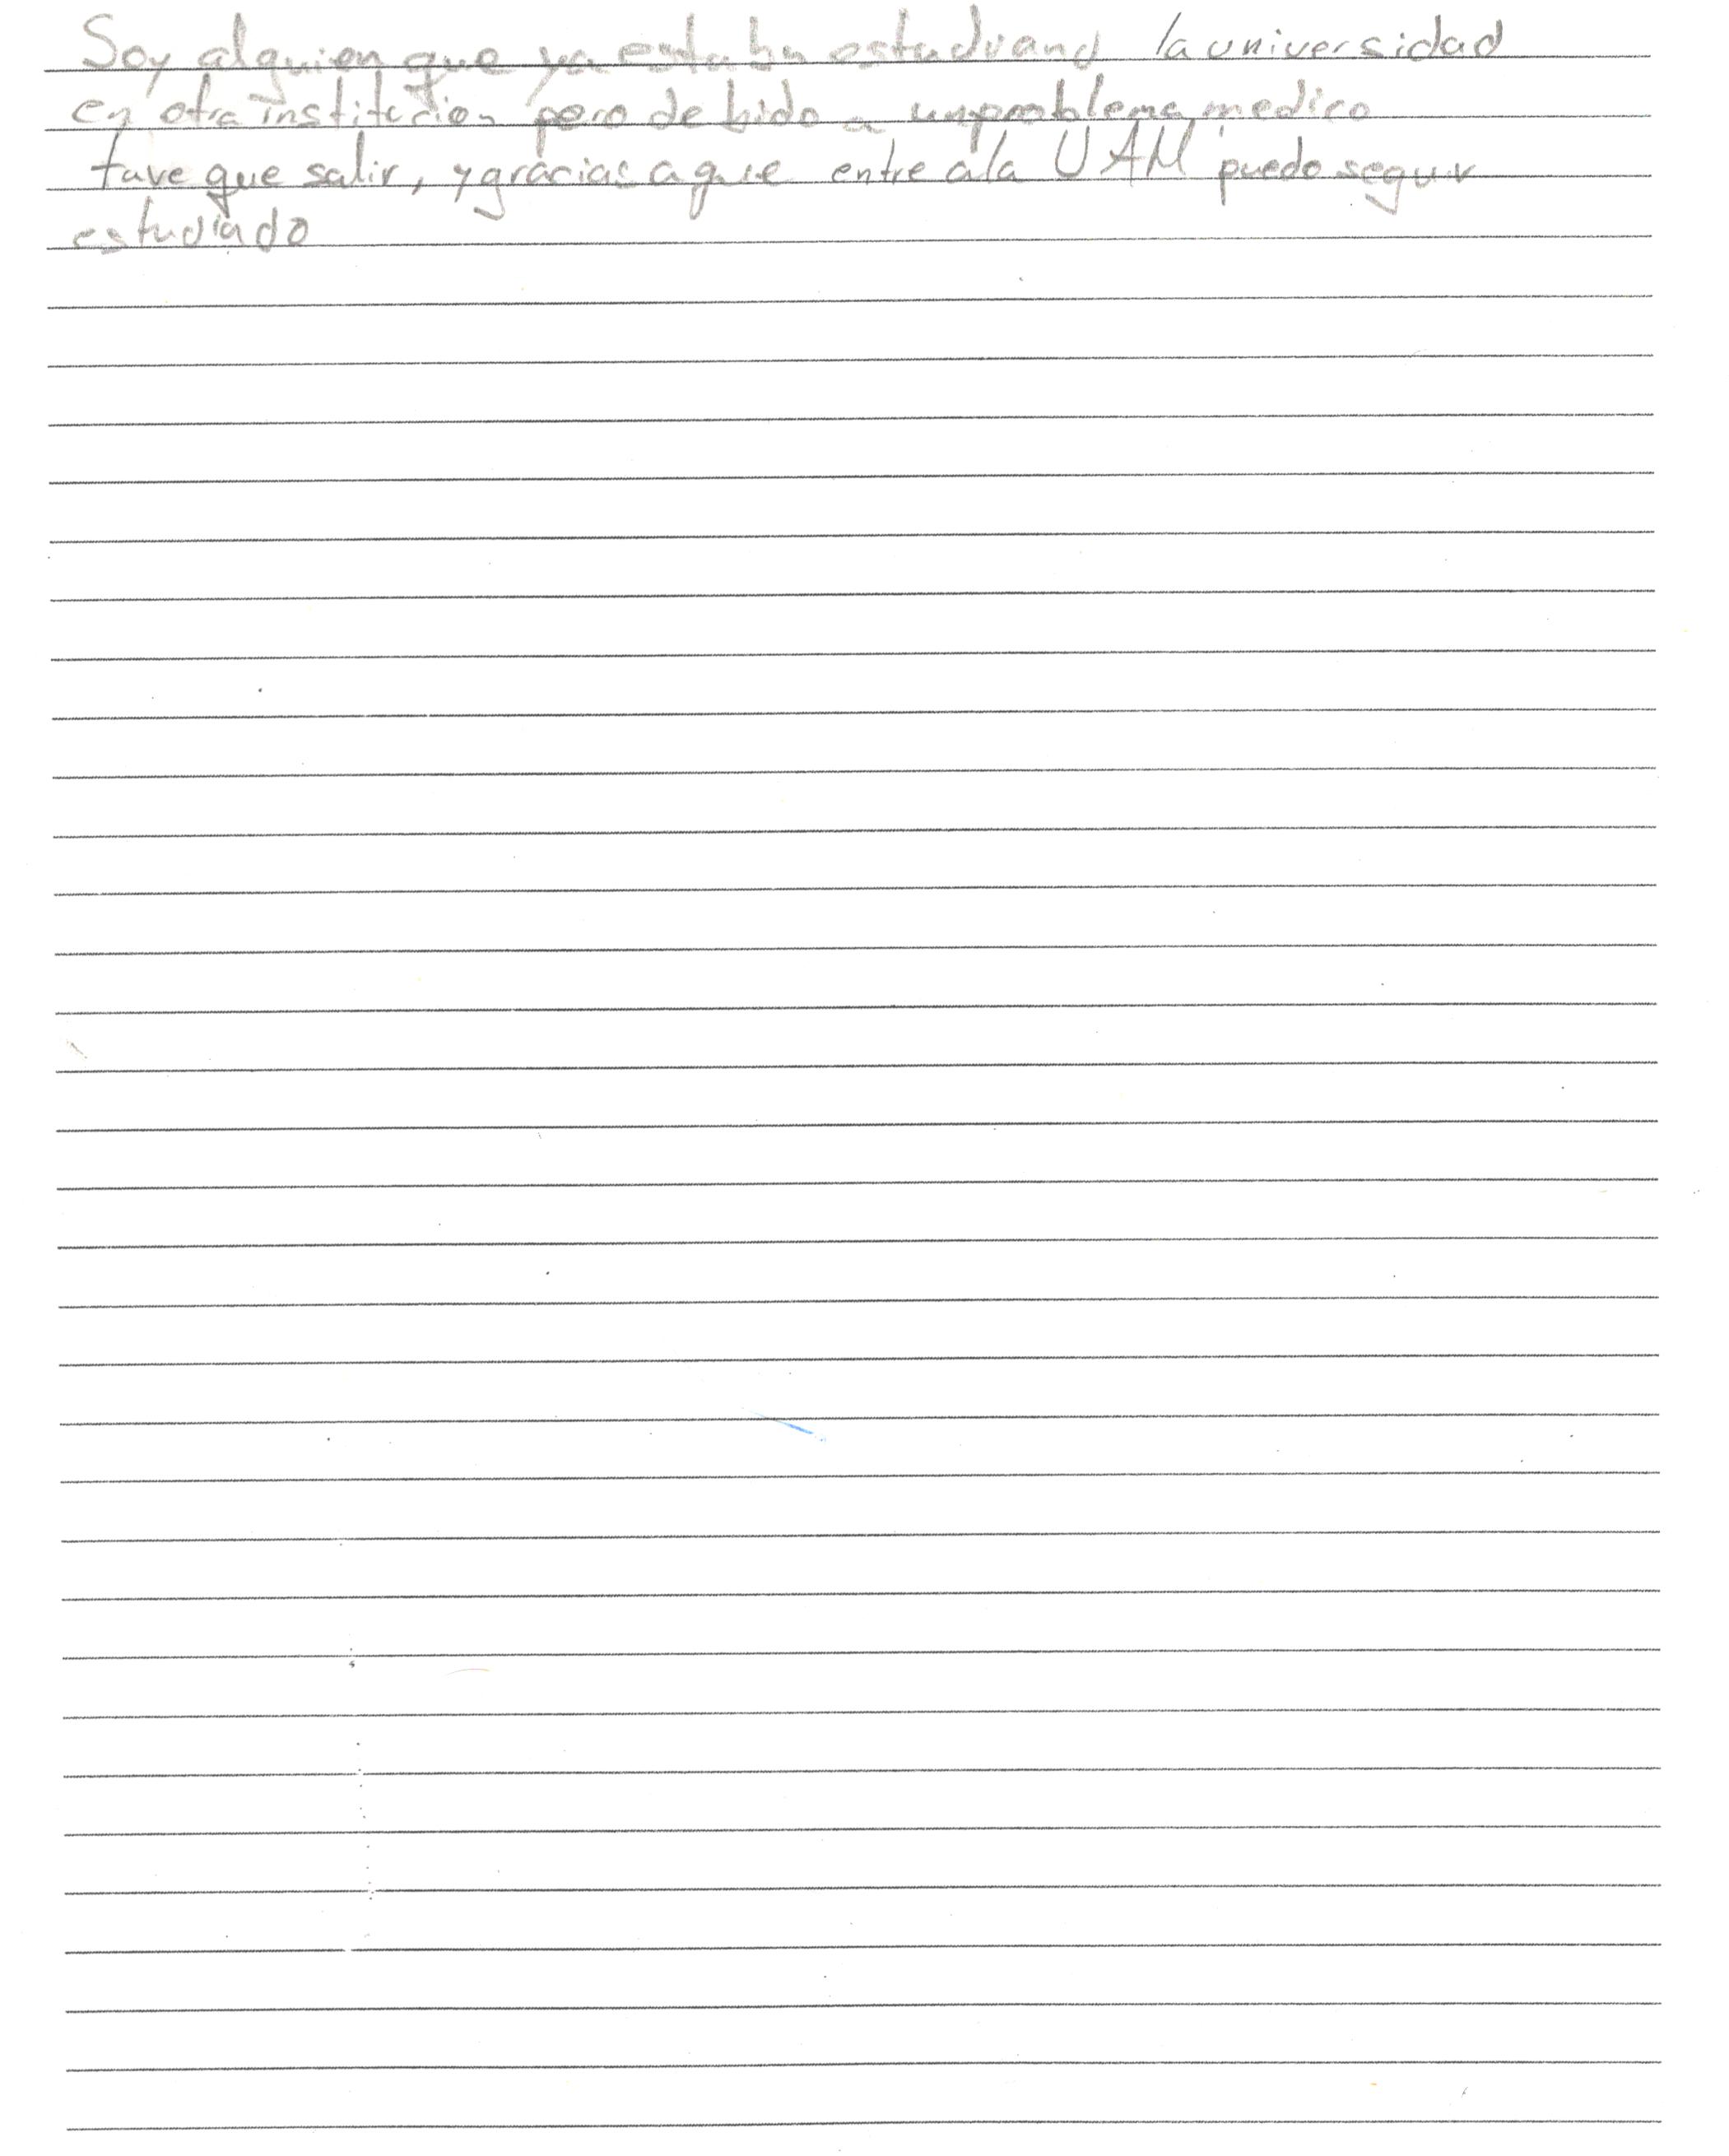 Soy alguien que ya estaba estudiand la universidad
en otra institucion pero debido a un problema medico
tuve que salir, y gracias a que entre a la UAM puedo seguir
estudiado